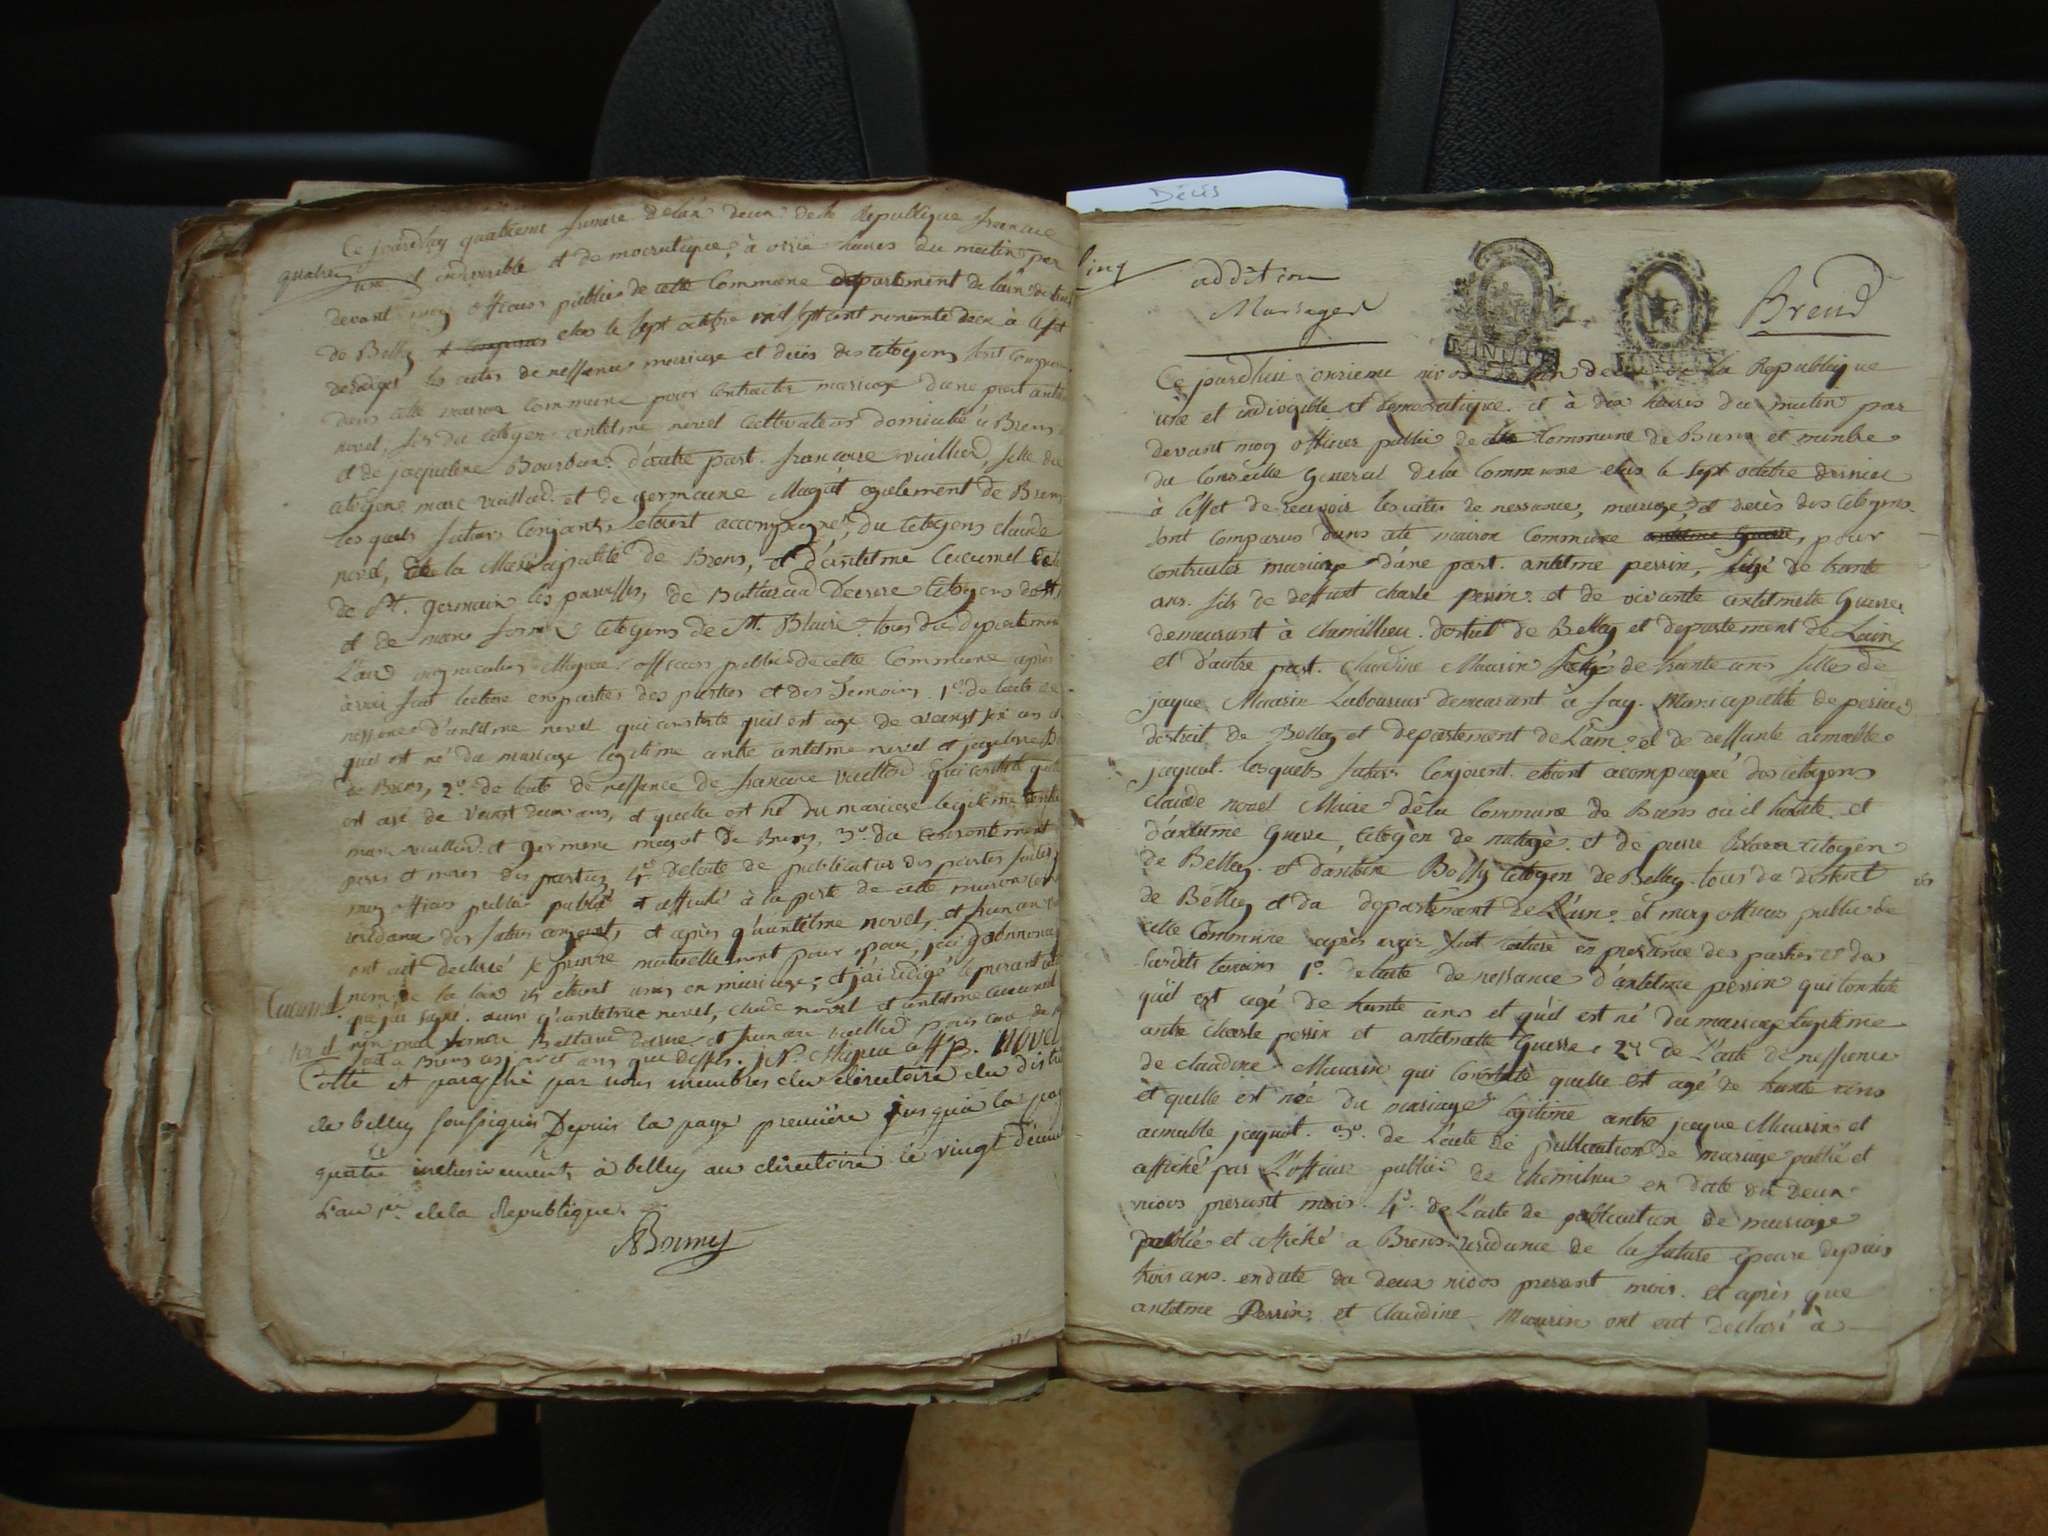 quatre
Ce jourdhuy quatrieme frimaire delan deux de la Republique francaise
une et indivisible et democratique, à onze heures du matin par
devant moy officier public de cette Commune departement de lain district
de Belley elus le sept octobre mil sept cent nonante deux à leffet
de rediger les actes de nessance mariage et deces des Citoyens sont comparus
dans cette maison Commune pour contracter mariage dune part antelme
novel, fils du Citoyen antelme novel Cultivateur domicilié à Brens
et de jaqueline Bourbon. d'autre part. francoise vuillerd, fille du
citoyen marc vuillerd et de germaine Magat egalement de Brens
les quels futurs Conjoints etoient accompagné du Citoyens claude
novel, de la Municipalité de Brens, et d'antelme Cucumel
de St. germain les paroisses, de Citoyens de
et de marc Citoyens de St. Blaise. tous du departement
L'ain moy nicolas officier public de cette Commune après
avoir fait lecture en des parties et des temoins. 1o. de lacte de
nessence d'antelme novel qui constate quil est age de vingt six ans et
quil est né du mariage legitime antre antelme novel et jaqueline
de Brens, 2o. de lacte de nessance de francoise vuillerd qui constate quelle
est age de vingt deux ans, et quelle est né du mariage legitime antre
marc vuillerd et germene magat de Brens, 3o. du consentement
peres et meres des parties 4o. de lacte de publication des parties faites
moy officier public publié et affiché à la porte de cette maison
residance des futurs conjoints, et après qu'antelme novel, et francoise
ont aut declaré se prendre mutuellement pour epoux, jai prononcé
nom de la loix ils etoient unis en mariage, et j'ai redigé le present acte
Cucumel. que jai signé. avec qu'antelme novel, claude novel et antelme cucumel
et non marc et francoise vuillerd pour
fait a Brens les jour et ans que dessus. novel
Cotté et paraphé par nous membres du directoire du district
de belley soussignés Depuis la page premiere jusqu'à la page
quatre inclusivement, à belley au directoire le vingt
L'an 1er. de la Republique.
Décès
cinq
addition
Mariages
MINUTE
Brens
Ce jourdhui onzieme nivos lan deux de la Republique
une et indivisible et democratique. et à dix heures du matin par
devant moy officier public de la Commune de Brens et menbre
du Conseille General dela Commune elus le sept octobre dernier
à leffet de recevoir les actes de nessance, mariage, et decès des Citoyens
sont Comparus dans cete maison Commune antelme Guerre, pour
contracter mariage d'une part. antelme perrin, agé de trante
ans. fils de deffunt charle perrin. et de vivante antelmette Guerre
demeurant à Chemillieu. district de Belley et departement de Lain
et d'autre part. Claudine Maurin agé de trante ans filles de
jaque Maurin Laboureur demeurant à fay. Municipalité de peisieu
district de Belley et departement de Lain. et de deffunte aemable
jaquot. lesquels futurs Conjoint. etoient acompagné des Citoyens
claude novel Maire dela Commune de Brens ou il habite. et
d'antelme Guerre, Citoyen de nattage. et de pierre Citoyen
de Belley. et dantoine Bolly Citoyen de Belley. tous du district
de Belley et du departement de L'ain. et moy officier public de
cette Commune après avoir fait lecture en presence des parties et des
susdits temoins 1o. de lacte de nessance d'antelme perrin qui constate
qu'il est agé de trante ans et qu'il est né du mariage legitime
antre charle perrin et antelmette Guerre, 2o de L'acte de nessence
de claudine Maurin qui constate quelle est agé de trante ans
et quelle est née du mariage legitime antre jaque Maurin et
aemable jaquot. 3o. de L'acte de publication de mariage publié et
affiché par L'officier public de Chemilieu en date du deux
nivos presant mois. 4o. de L'acte de publication de mariage
publié et affiché a Brens residance de la future epouse depuis
trois ans. en date du deux nivos presant mois. et après que
antelme Perrin, et Claudine Maurin ont aut declaré à